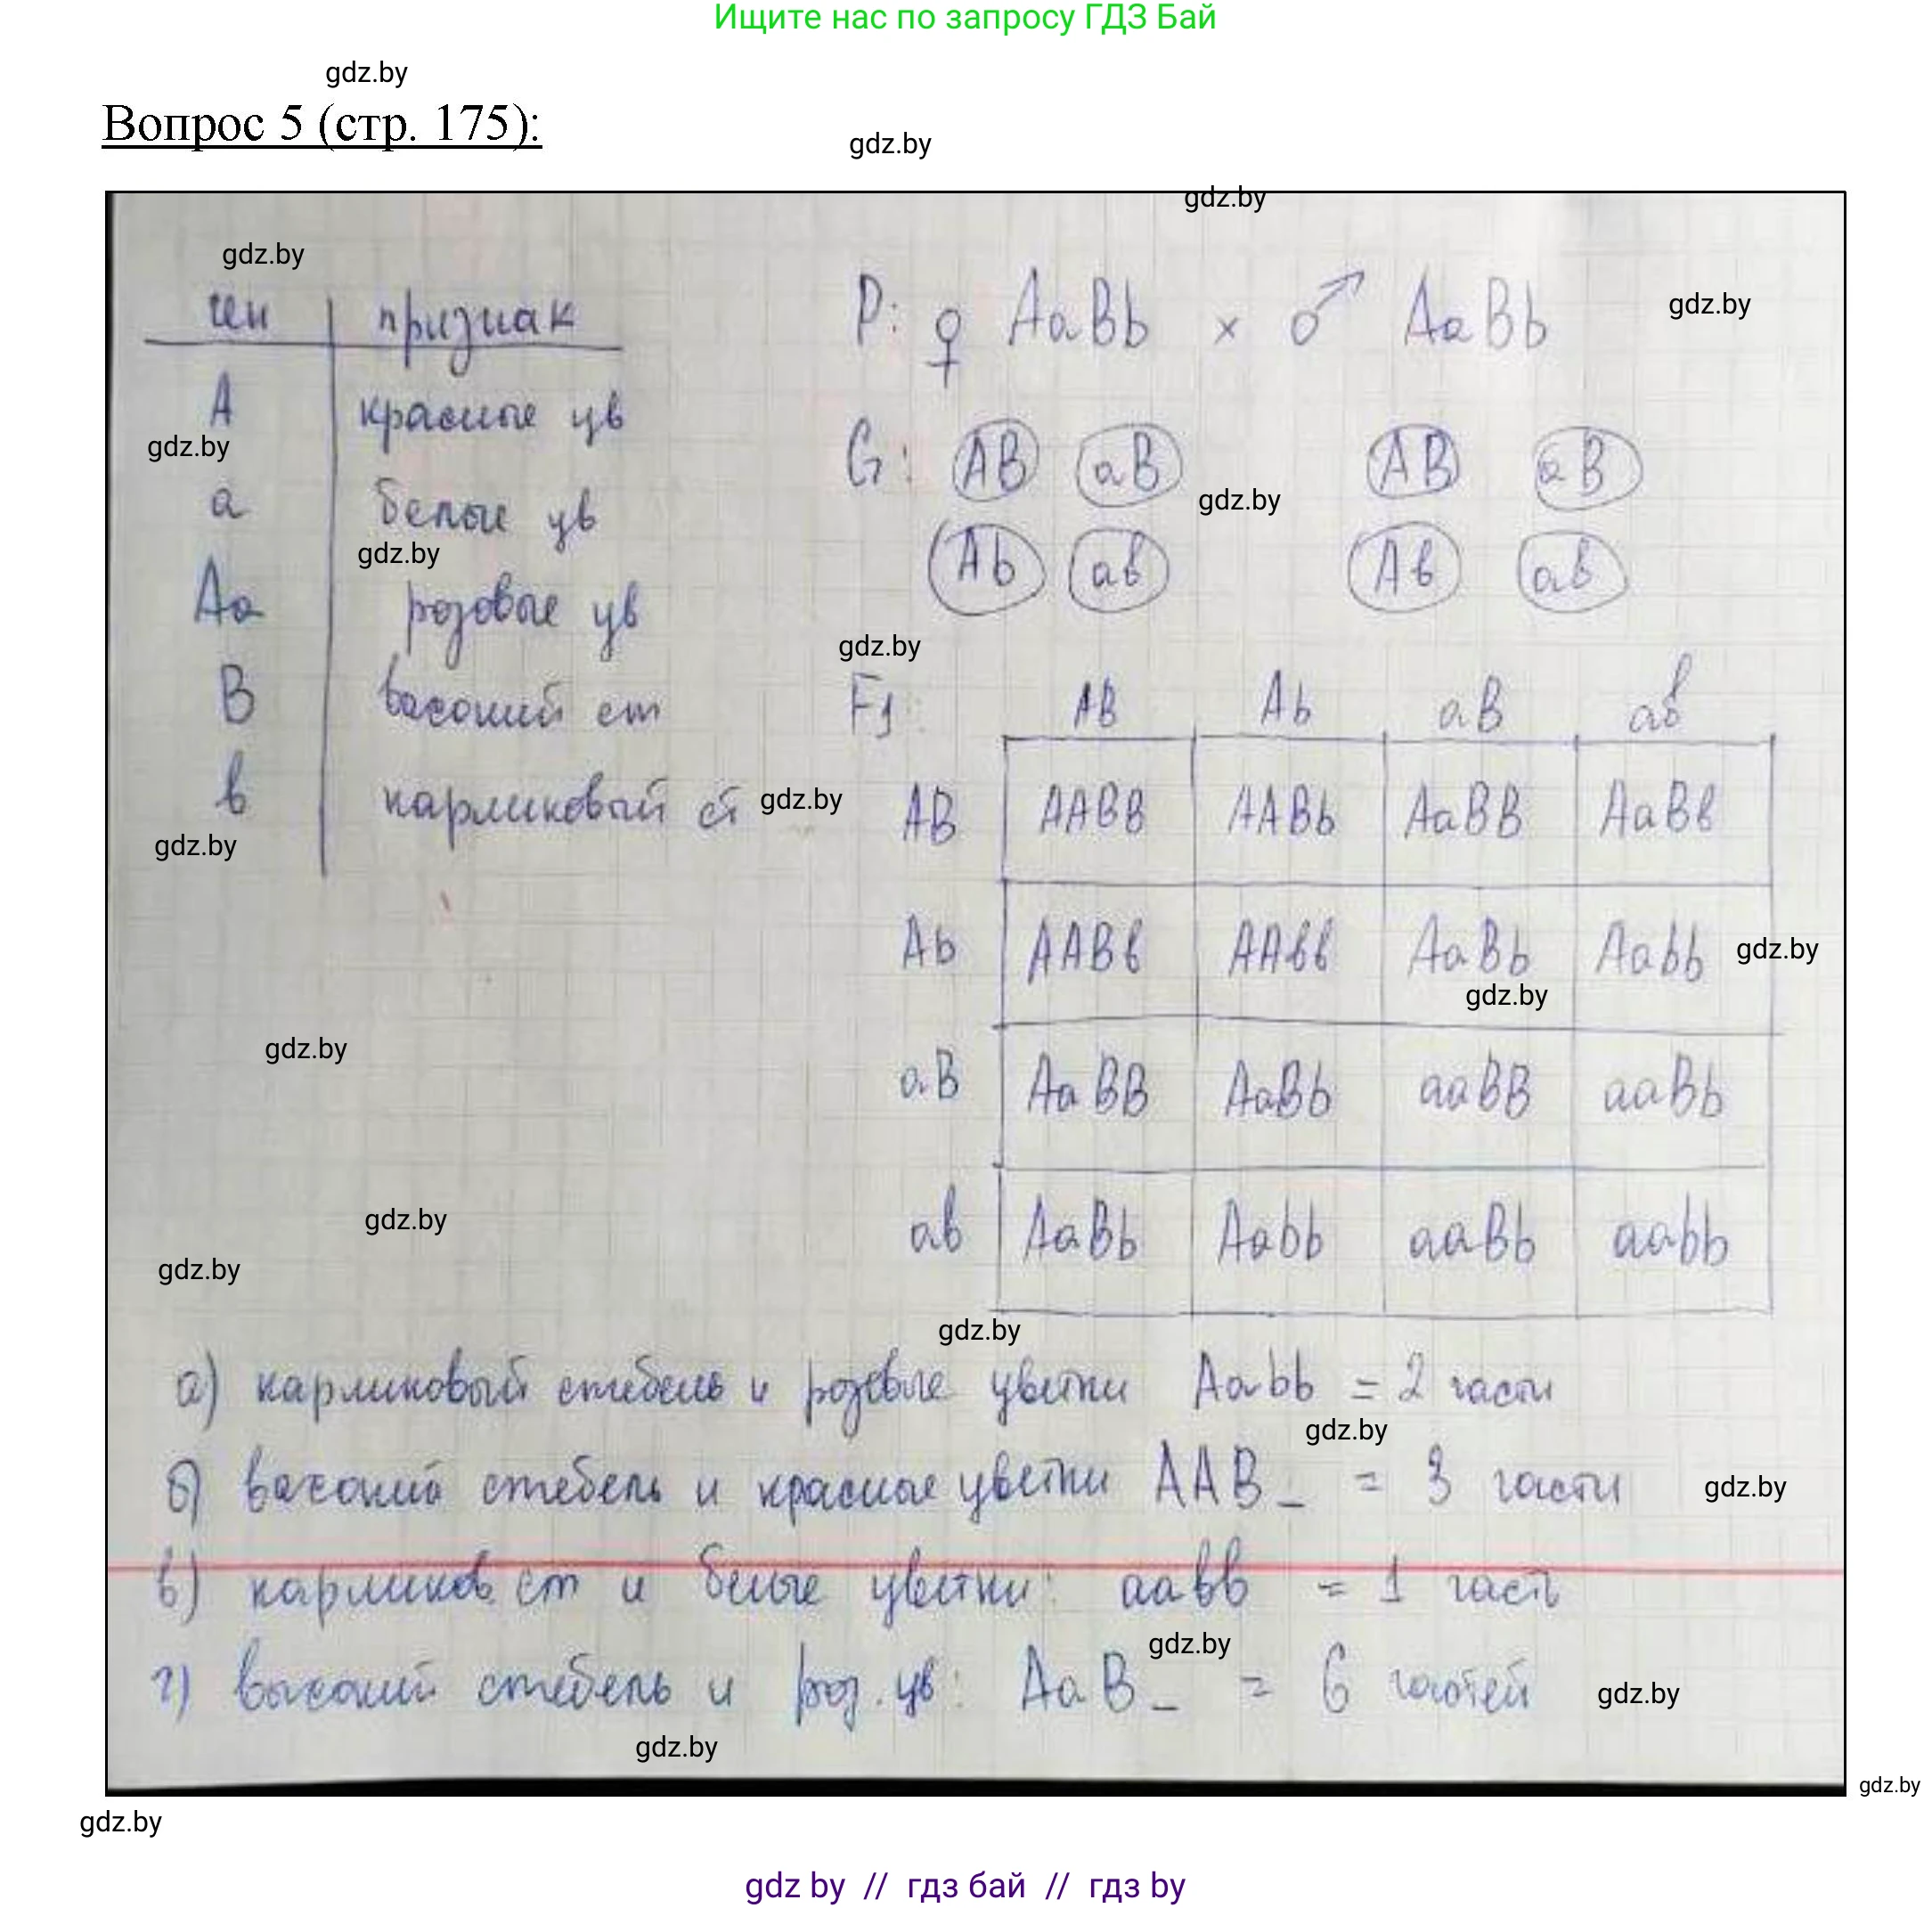 Ищите нас по запросу ГДЗ Бай
gdz.by
Вопрос 5 (стр. 175):
gdz.by
gdz.by
gdz.by
ген признак
P: ♀ AaBb × ♂ AaBb
gdz.by
A красные цв
gdz.by
G: AB aB AB aB
a белые цв
gdz.by
gdz.by
Ab ab Ab ab
Aa розовые цв
gdz.by
B высокий ст
F1: AB Ab aB ab
в карликовый ст
gdz.by
AB AABB AABb AaBB AaBb
gdz.by
Ab AABb AAbb AaBb Aabb
gdz.by
gdz.by
gdz.by
aB AaBB AaBb aaBB aaBb
gdz.by
ab AaBb Aabb aaBb aabb
gdz.by
gdz.by
а) карликовый стебель и розовые цветки Aabb = 2 части
gdz.by
б) высокий стебель и красные цветки AAB_ = 3 части
gdz.by
в) карликов ст и белые цветки: aabb = 1 часть
gdz.by
г) высокий стебель и роз. цв: AaB_ = 6 частей
gdz.by
gdz.by
gdz.by
gdz.by
gdz by // гдз бай // гдз by